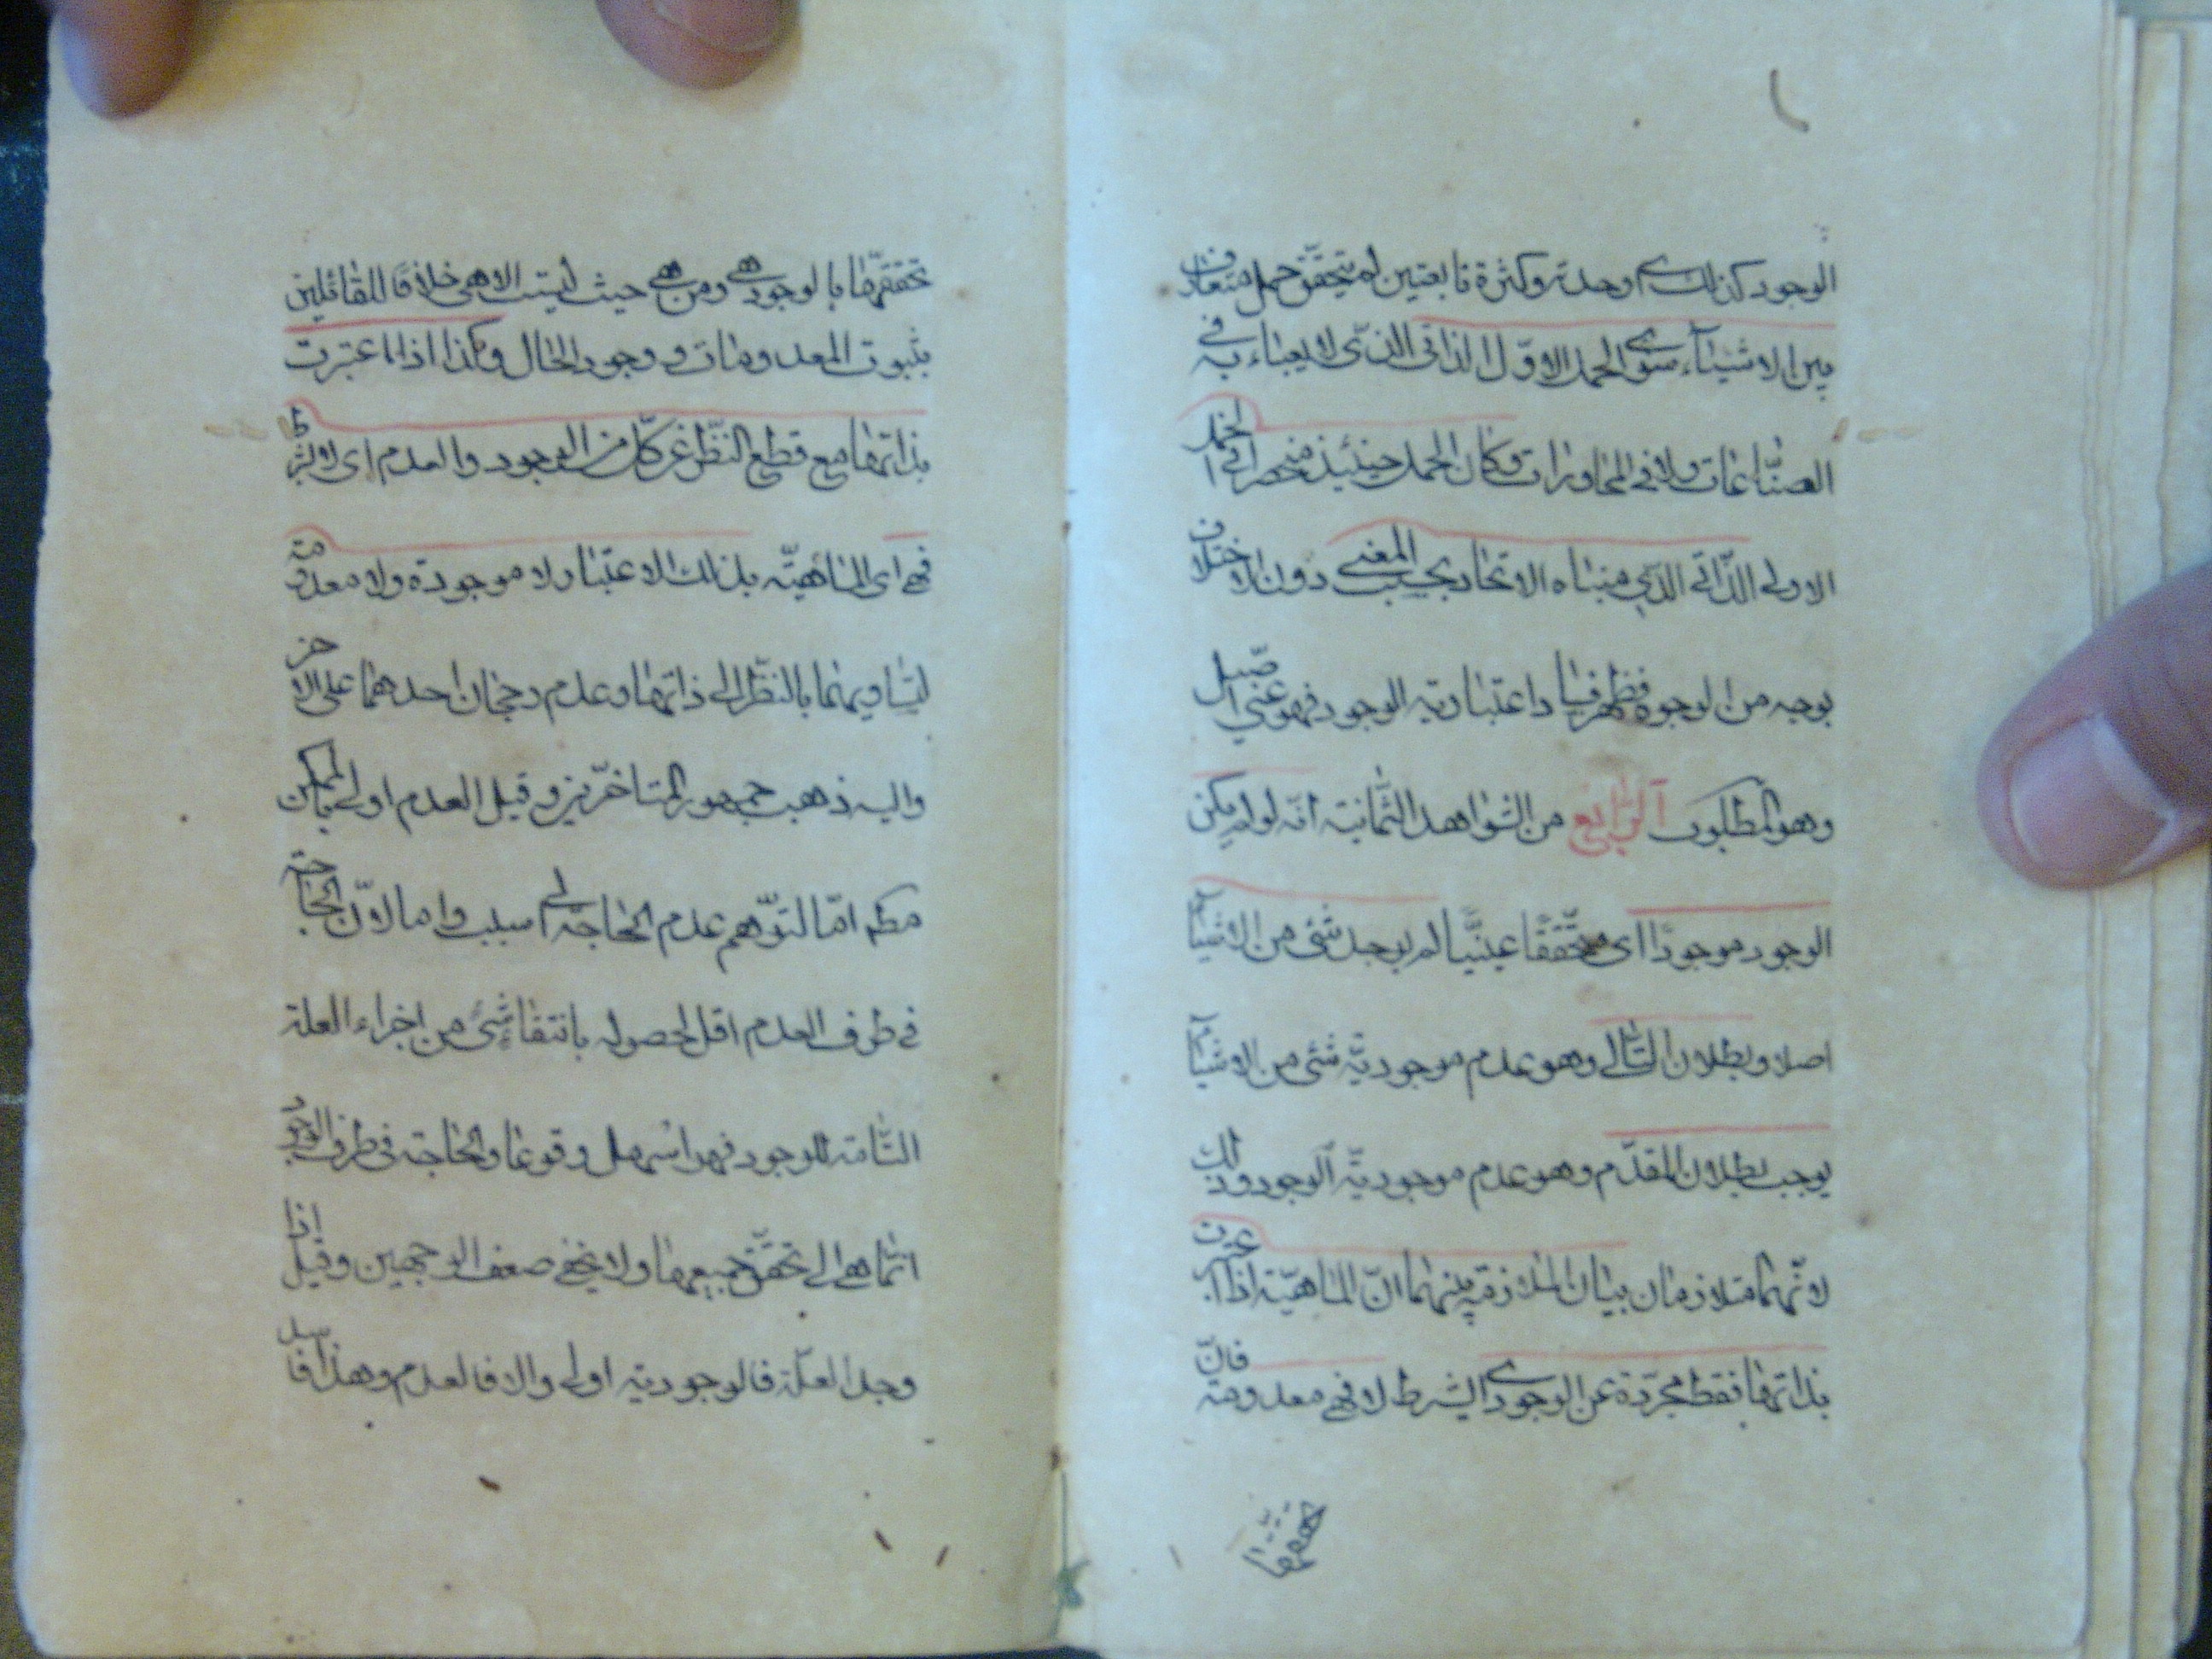 الوجود كذلك اى وحدته وكثرة تابعتين لم يتحقق حمل متعارف
بين الاشياء سوى الحمل الاول الذاتى الذى لا يعباء به فى
الصناعات ولا فى المحاورات وكان الحمل حينئذ منحصرا فى الحمل
الاولى الذاتى الذى مبناه الاتحاد بحسب المعنى دون الاختلاف
بوجه من الوجوه فظهر فساد اعتبارية الوجود فهو عينى اصيل
وهو المطلوب الرابع من الشواهد الثمانية انه لو لم يكن
الوجود موجودا اى محققا عينيا لم يوجد شئ من الاشياء
اصلا وبطلان التالى وهو عدم موجودية شئ من الاشياء
يوجب بطلان المقدم وهو عدم موجودية الوجود وذلك
لانهما متلازمان بيان الملازمة بينهما ان الماهية اذا اعتبرت
بذاتها فقط مجردة عن الوجود اى بشرط لا فهى معدومة فان
تحققها
تحققها بالوجود هى ومن هى حيث ليست الا هى خلافا للقائلين
بثبوت المعدومات و وجود الحال وكذا اذا اعتبرت
بذاتها مع قطع النظر عن كل من الوجود والعدم اى لا بشرط
فهى اى الماهية بذلك الاعتبار لا موجودة ولا معدومة
لتساويهما بالنظر الى ذاتها وعدم رجحان احدهما على الاخر
واليه ذهب جمهور المتاخرين وقيل العدم اولى بالممكن
مطم اما لتوهم عدم الحاجة الى سبب واما لان الحاجة
فى طرف العدم اقل لحصوله بانتفاء شئ من اجزاء العلة
التامة للوجود فهو اسهل وقوعا والحاجة فى طرف الوجود
انما هى الى تحقق جميعها ولا يخفى ضعف الوجهين وقيل اذا
وجد العلة فالوجودية اولى والا فالعدم وهذا فاسد